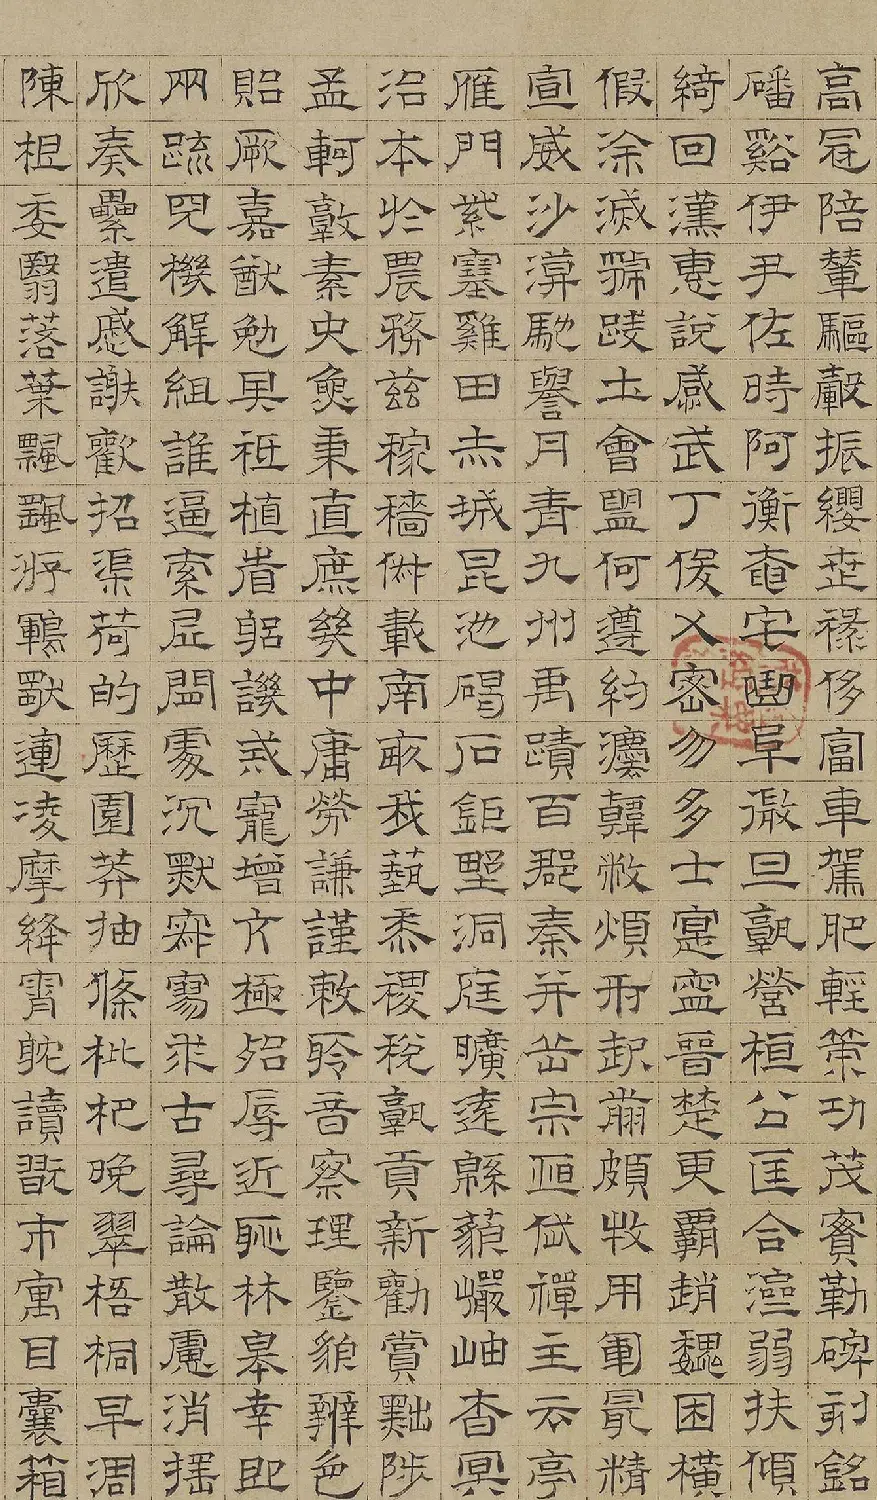 高冠陪輦驅轂振纓世祿侈富車駕肥輕策功茂實勒碑刻銘
磻谿伊尹佐時阿衡奄宅曲阜微旦孰營桓公匡合濟弱扶傾
綺回漢惠說感武丁俊乂密勿多士寔寧晉楚更霸趙魏困橫
假涂滅虢踐土會盟何遵約灋韓弊煩刑起翦頗牧用軍最精
宣威沙漠馳譽丹青九州禹蹟百郡秦并岳宗恒岱禪主云亭
雁門紫塞雞田赤城昆池碣石鉅野洞庭曠遠緜邈巖岫杳冥
治本於農務茲稼穡俶載南畝我藝黍稷稅孰貢新勸賞黜陟
孟軻敦素史魚秉直庶幾中庸勞謙謹敕聆音察理鑒貌辨色
貽厥嘉猷勉其祗植省躬譏誡寵增亢極殆辱近恥林皋幸即
兩疏見機解組誰逼索居閒處沉默寂寥求古尋論散慮消搖
欣奏纍遣慼謝歡招渠荷的歷園莽抽條枇杷晚翠梧桐早凋
陳根委翳落葉飄颻游鵾獨運凌摩絳霄耽讀翫市寓目囊箱